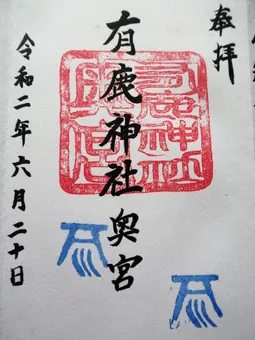 奉拝
有鹿神社奥宮
令和二年六月二十日